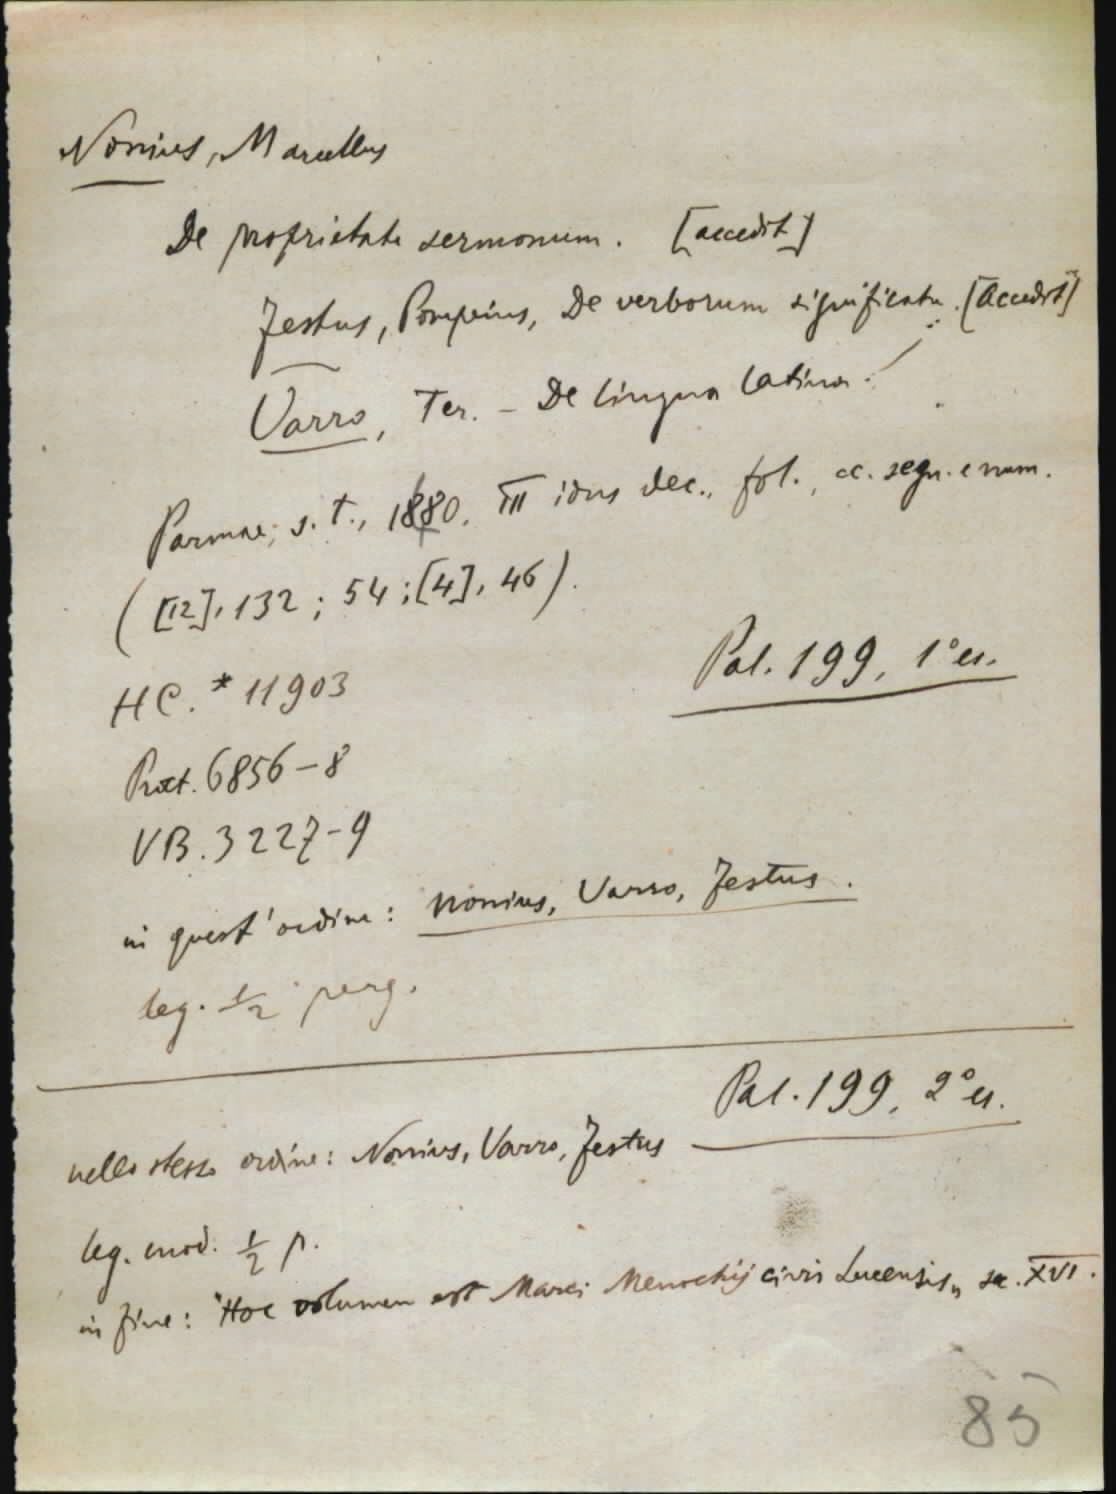 Nonius, Marcellus
De proprietate sermonum. [accedit]
Festus, Pompeius, De verborum significatu. [Accedit]
Varro, Ter. - De lingua latina.
Parmae, s. t., 1480, III idus dec., fol., cc. segn. e num.
([12], 132 ; 54 ; [4], 46).
Pal. 199, 1° es.
HC. * 11903
Proct. 6856-8
VB. 3227-9
in quest'ordine: Nonius, Varro, Festus.
leg. 1/2 perg.
Pal. 199, 2° es.
nello stesso ordine: Nonius, Varro, Festus
leg. mod. 1/2 p.
in fine: "Hoc volumen est Marci Menochij civis Lucensis" sec. XVI.
85